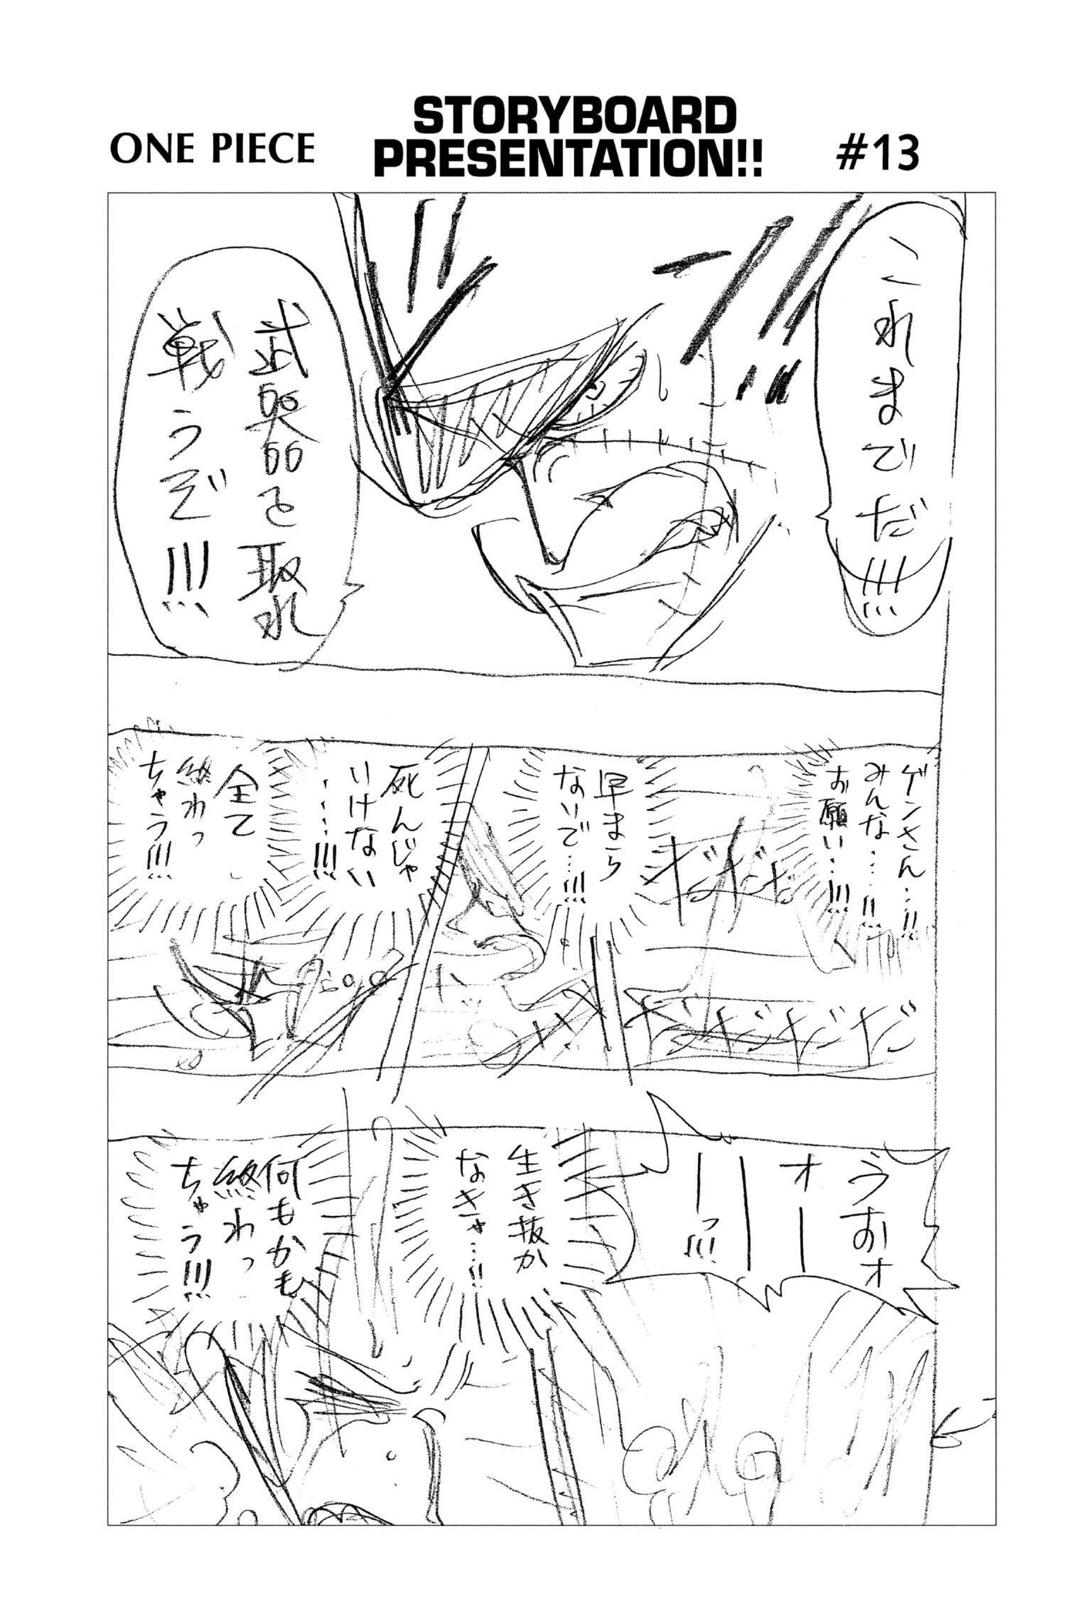 ONE PIECE
STORYBOARD
PRESENTATION!!
#13
これまでだ!!!
武器を取れ
戦うぞ!!!
ゲンさん…!!
みんな…!!
お願い…!!!
早まら
ないで…!!!
死んじゃ
いけない
…!!!
全て
終わっ
ちゃう!!!
だだだ
だだだだだ
うおォ
オー
ー
ーっ!!!
生き抜か
なきゃ…!!
何もかも
終わっ
ちゃう!!!